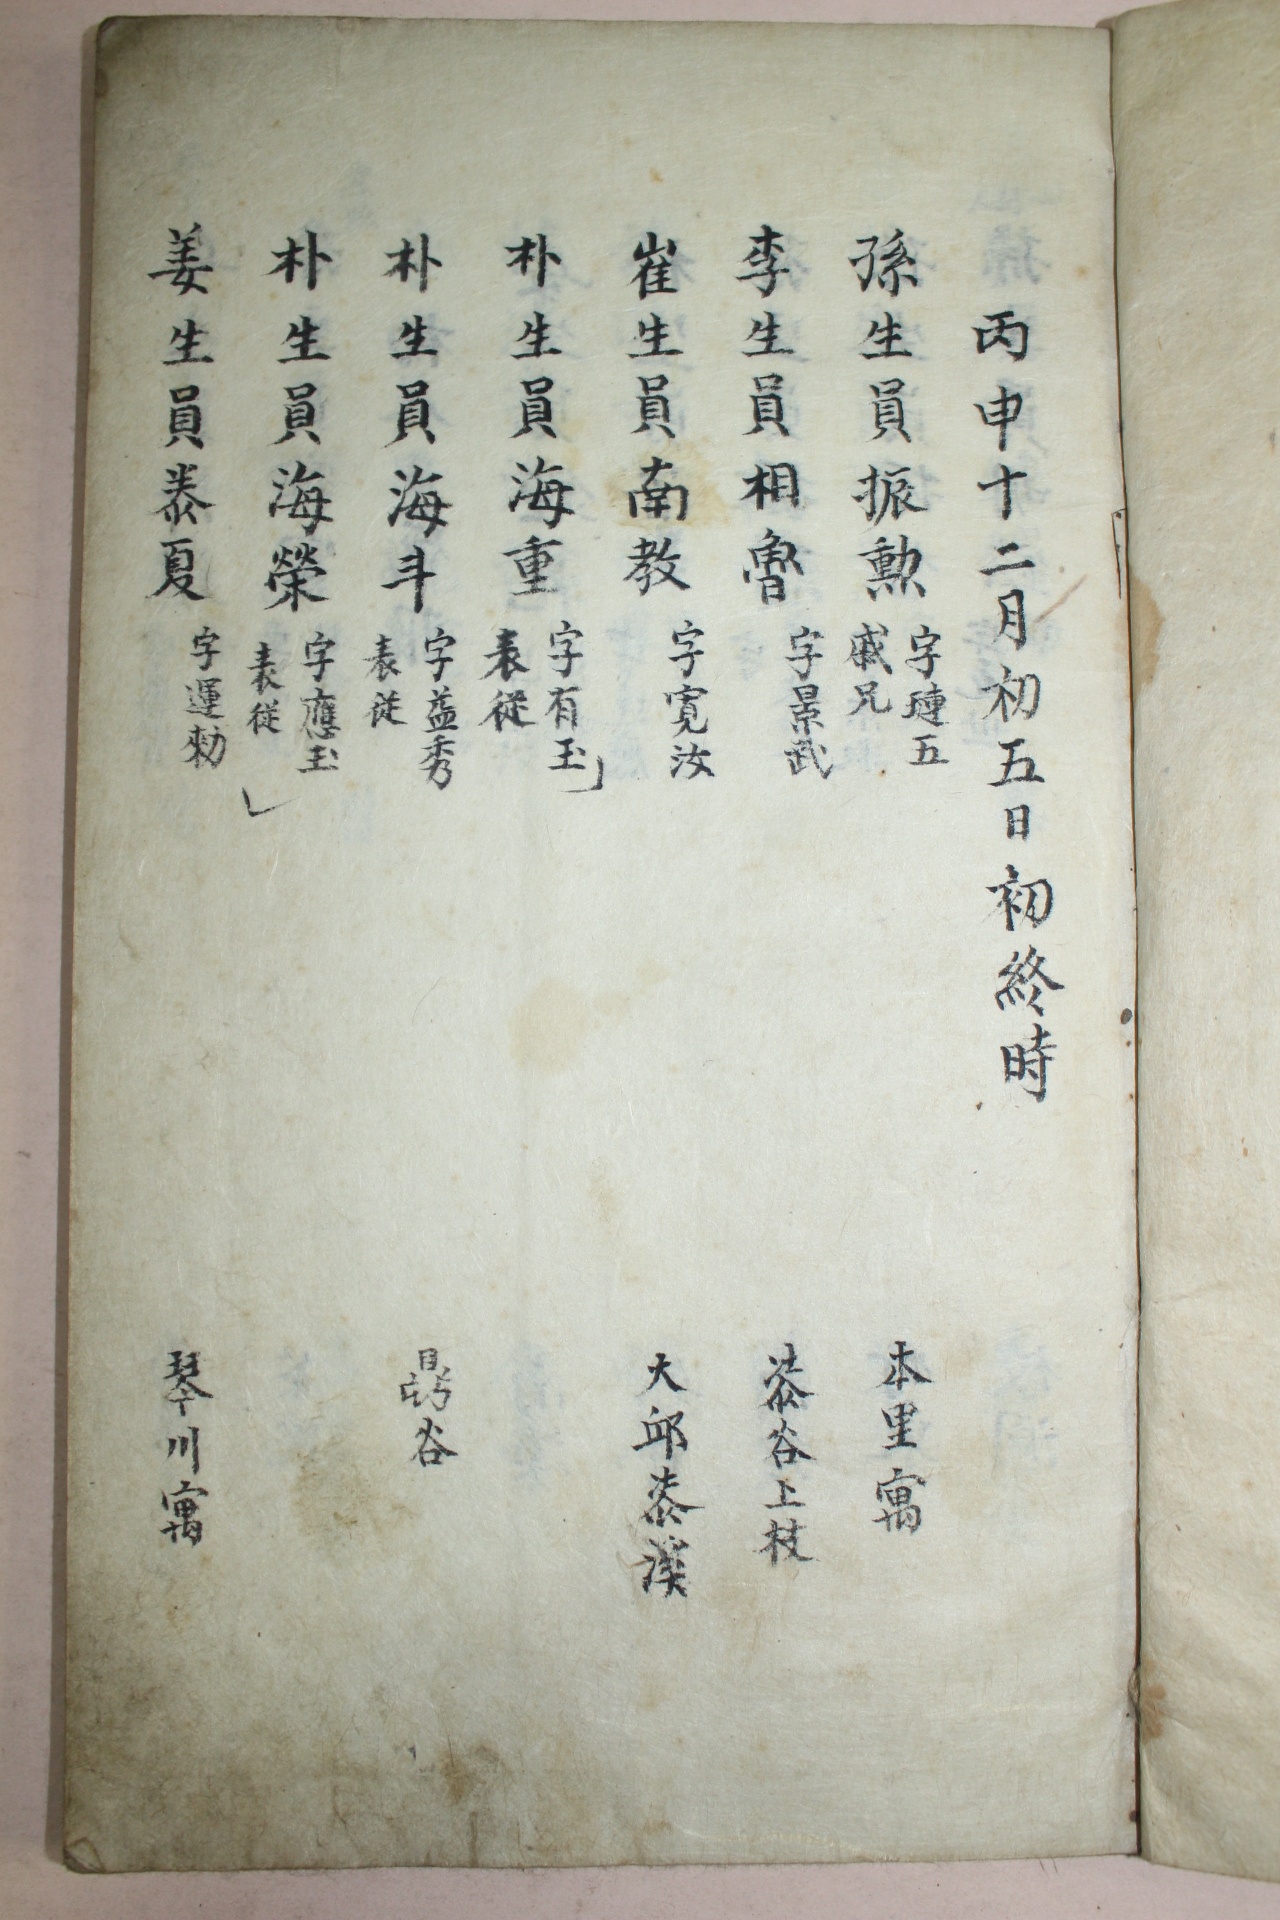 丙申十二月初五日初終時
孫生員振勲 字璉五 戚兄 本里寓
李生員相魯 字景武 泰谷上枝
崔生員南教 字寛汝 大邱泰溪
朴生員海重 字有玉 表従
朴生員海斗 字益秀 表従 谷
朴生員海榮 字應玉 表従
姜生員泰夏 字運勅 琴川寓